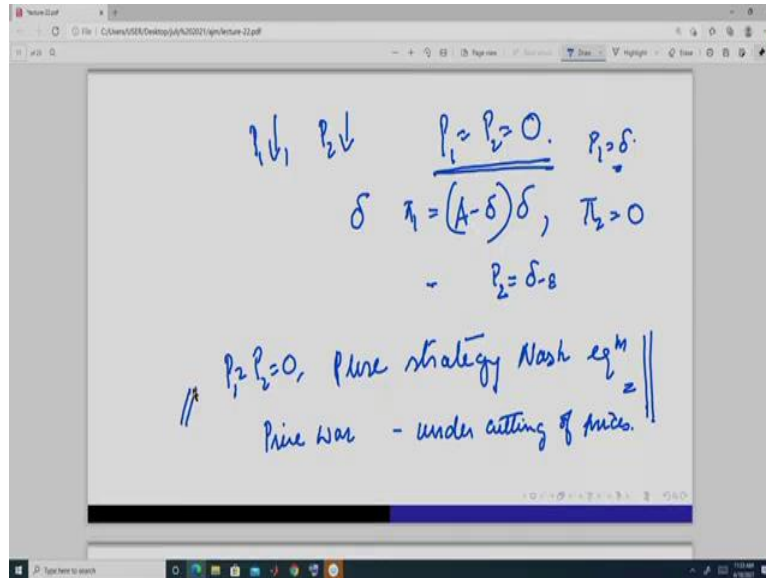 lecture-22.pdf
File | C:/Users/USER/Desktop/july%202021/ajm/lecture-22.pdf
Page view
Draw
Highlight
Erase
P₁↓, P₂↓ P₁ = P₂ = 0. P₁ = δ.
δ π₁ = (A-δ)δ, π₂ = 0
- P₂ = δ-ε
P₁ = P₂ = 0, Pure strategy Nash eqᵐ
Price war - under cutting of prices.
Type here to search